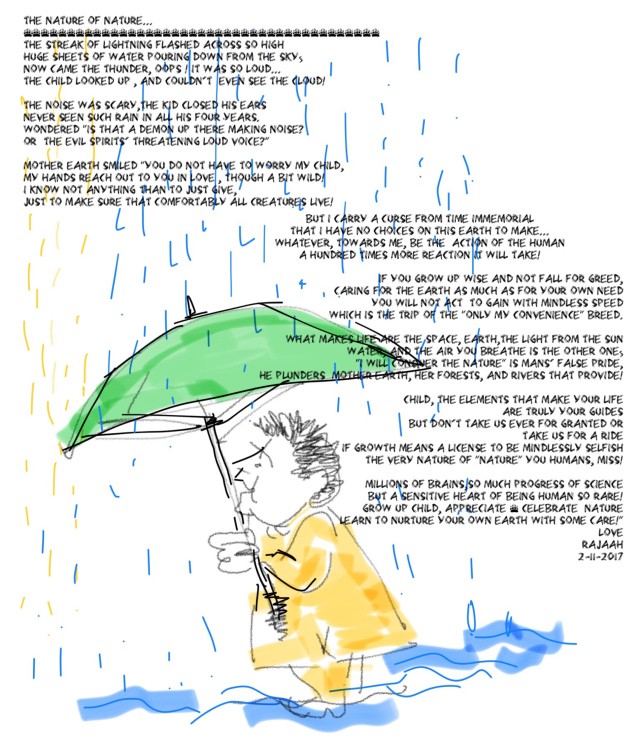 THE NATURE OF NATURE...
THE STREAK OF LIGHTNING FLASHED ACROSS SO HIGH
HUGE SHEETS OF WATER POURING DOWN FROM THE SKY,
NOW CAME THE THUNDER, OOPS ! IT WAS SO LOUD...
THE CHILD LOOKED UP , AND COULDN'T EVEN SEE THE CLOUD!
THE NOISE WAS SCARY,THE KID CLOSED HIS EARS
NEVER SEEN SUCH RAIN IN ALL HIS FOUR YEARS.
WONDERED "IS THAT A DEMON UP THERE MAKING NOISE?
OR THE EVIL SPIRITS' THREATENING LOUD VOICE?"
MOTHER EARTH SMILED "YOU DO NOT HAVE TO WORRY MY CHILD,
MY HANDS REACH OUT TO YOU IN LOVE , THOUGH A BIT WILD!
I KNOW NOT ANYTHING THAN TO JUST GIVE,
JUST TO MAKE SURE THAT COMFORTABLY ALL CREATURES LIVE!
BUT I CARRY A CURSE FROM TIME IMMEMORIAL
THAT I HAVE NO CHOICES ON THIS EARTH TO MAKE...
WHATEVER, TOWARDS ME, BE THE ACTION OF THE HUMAN
A HUNDRED TIMES MORE REACTION IT WILL TAKE!
IF YOU GROW UP WISE AND NOT FALL FOR GREED,
CARING FOR THE EARTH AS MUCH AS FOR YOUR OWN NEED
YOU WILL NOT ACT TO GAIN WITH MINDLESS SPEED
WHICH IS THE TRIP OF THE "ONLY MY CONVENIENCE" BREED.
WHAT MAKES LIFE ARE THE SPACE, EARTH,THE LIGHT FROM THE SUN
WATER, AND THE AIR YOU BREATHE IS THE OTHER ONE;
"I WILL CONQUER THE NATURE" IS MANS' FALSE PRIDE,
HE PLUNDERS MOTHER EARTH, HER FORESTS, AND RIVERS THAT PROVIDE!
CHILD, THE ELEMENTS THAT MAKE YOUR LIFE
ARE TRULY YOUR GUIDES
BUT DON'T TAKE US EVER FOR GRANTED OR
TAKE US FOR A RIDE
IF GROWTH MEANS A LICENSE TO BE MINDLESSLY SELFISH
THE VERY NATURE OF "NATURE" YOU HUMANS, MISS!
MILLIONS OF BRAINS,SO MUCH PROGRESS OF SCIENCE
BUT A SENSITIVE HEART OF BEING HUMAN SO RARE!
GROW UP CHILD, APPRECIATE CELEBRATE NATURE
LEARN TO NURTURE YOUR OWN EARTH WITH SOME CARE!"
LOVE
RAJAAH
2-11-2017